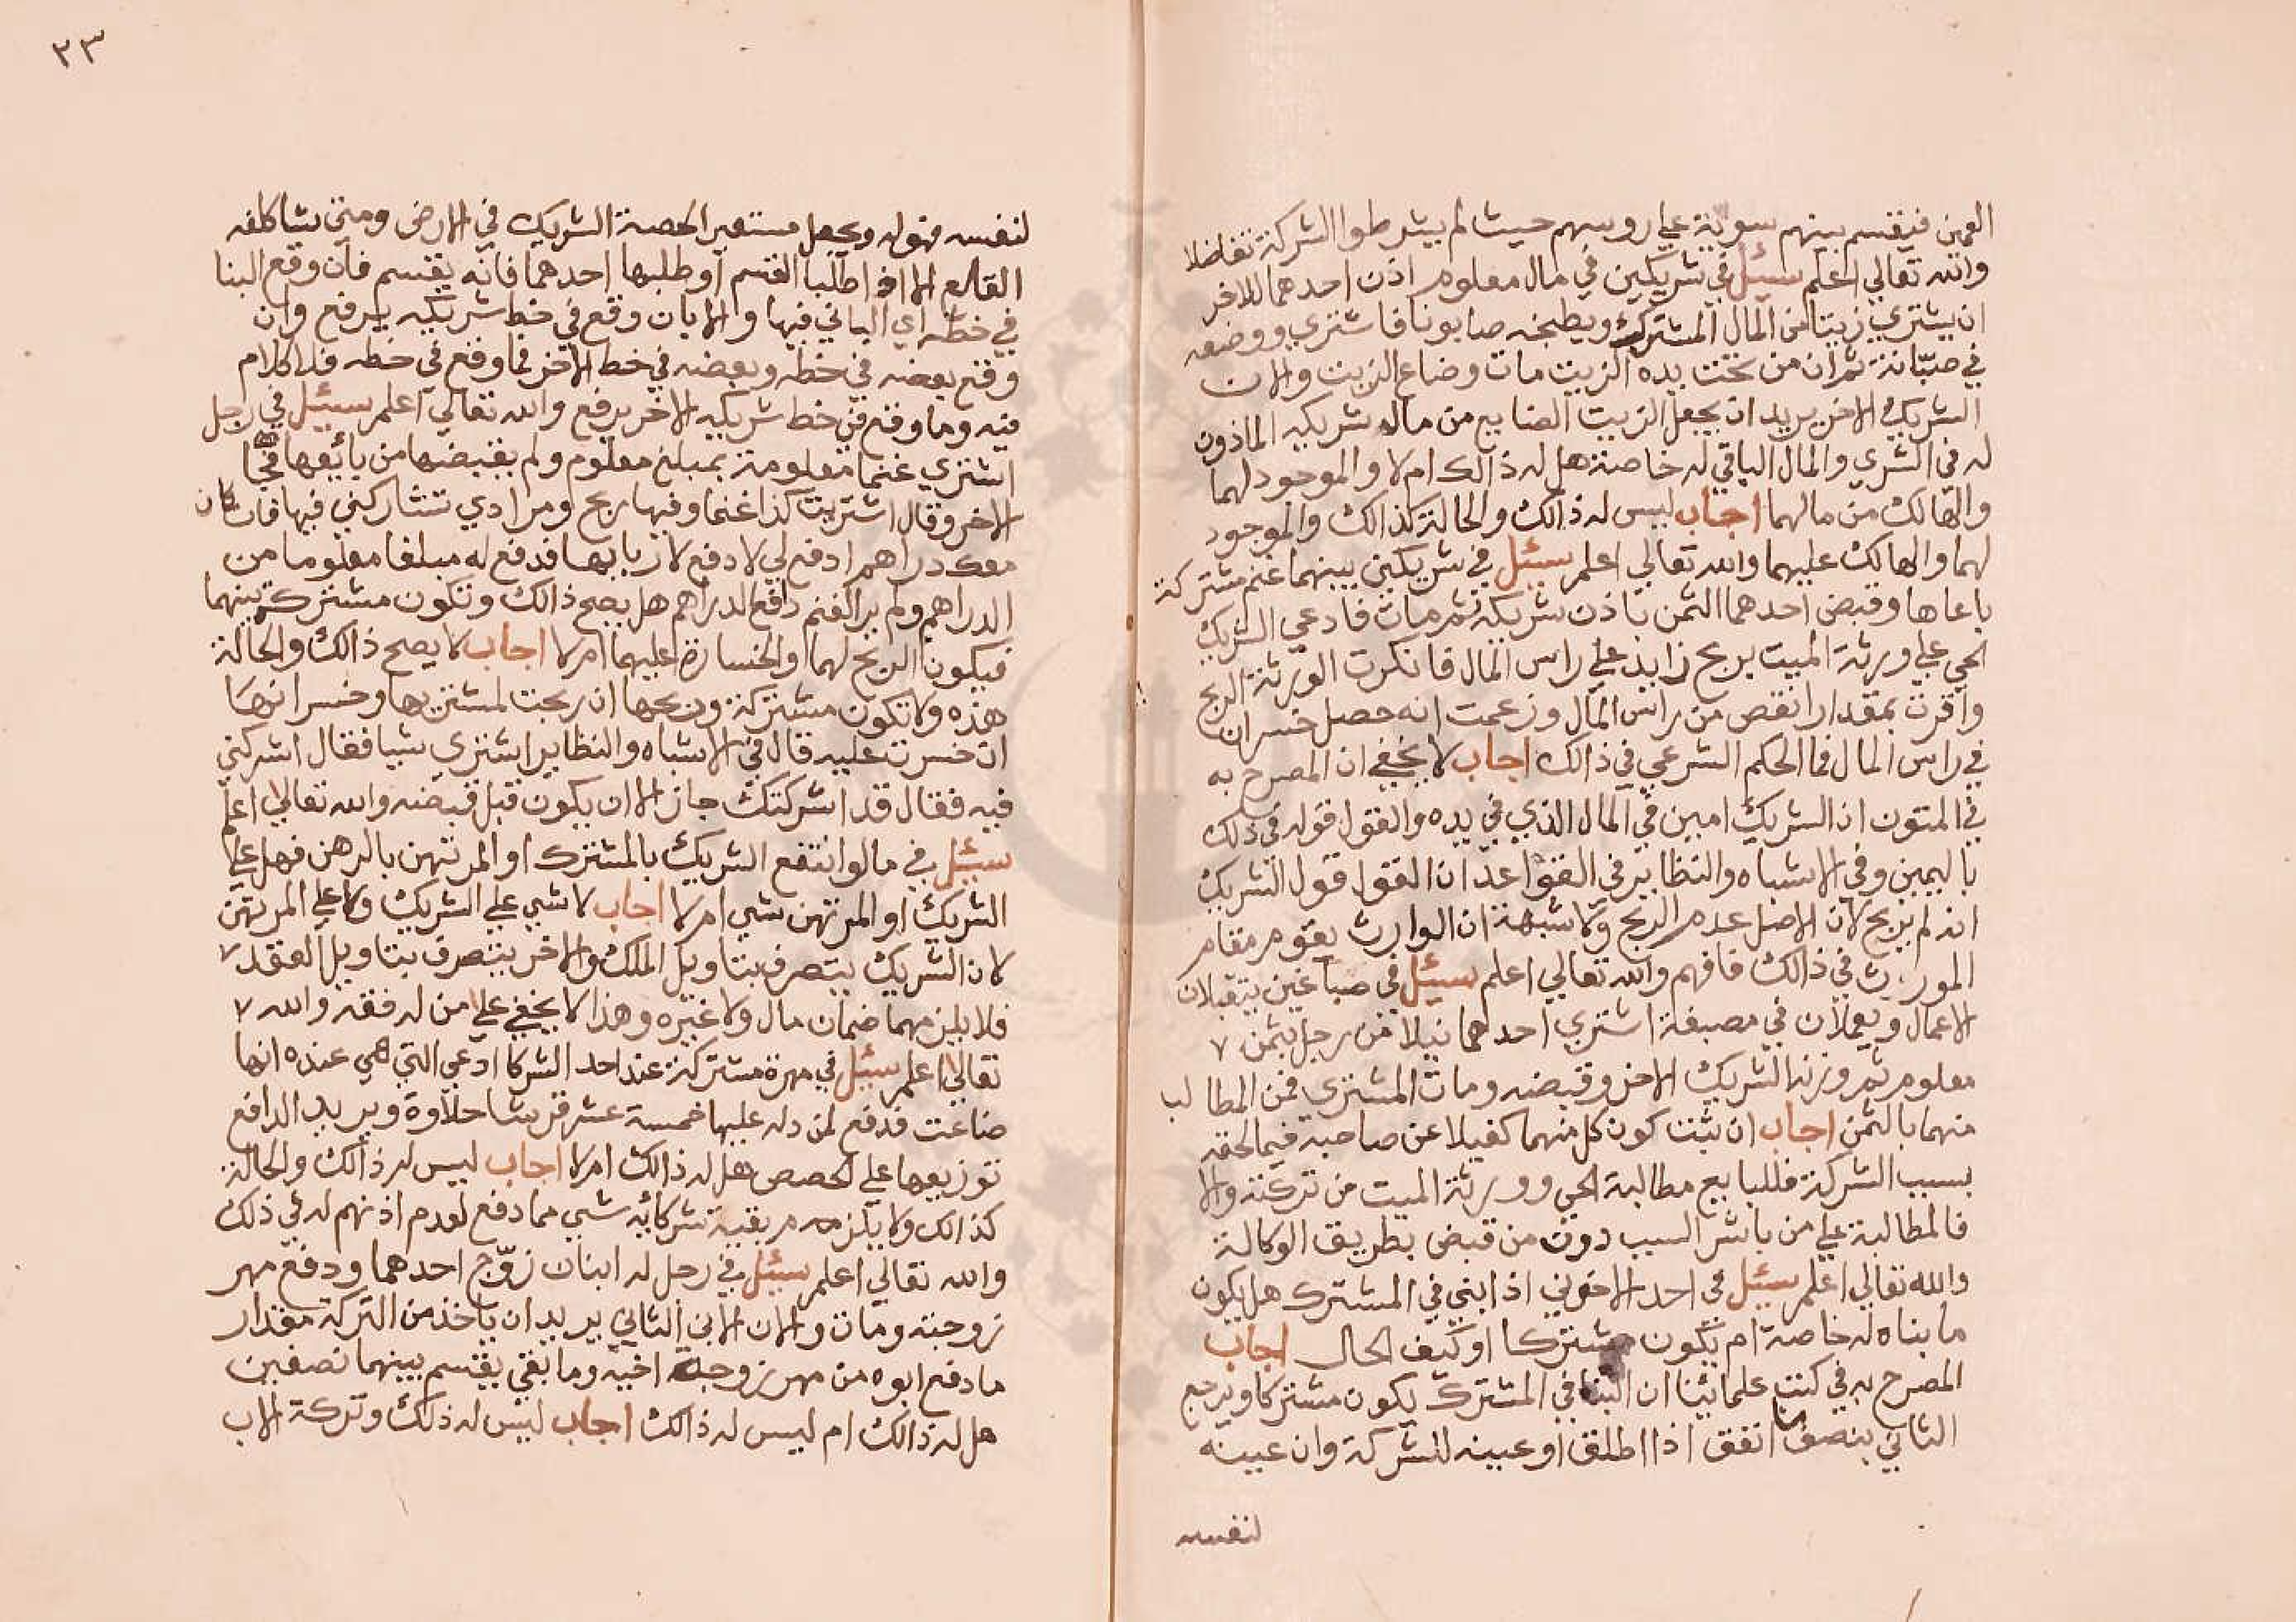 العمين فيقسم بينهم سوية علي روسهم حيث لم يشرطوا الشركة تفاضلا
والله تعالي اعلم سيئل في شريكين في مال معلوم اذن احدهما للاخر
ان يشتري زيتا من المال المشترك ويطبخه صابونا فاشتري ووضعه
في صبّانة ثم ان من تحت يده الزيت مات وضاع الزيت والان
الشريك الاخر يريد ان يجعل الزيت الضايع من مال شريكه الماذون
له في الشري والمال الباقي له خاصة هل له ذالك ام لا والموجود لهما
والهالك من مالهما اجاب ليس له ذالك والحالة كذالك والموجود
لهما والهالك عليهما والله تعالي اعلم سيئل في شريكين بينهما غنم مشتركة
باعاها وقبض احدهما الثمن باذن شريكه ثم مات فادعي الشريك
الحي علي ورثة الميت بربح زايد علي راس المال فانكرت الورثة الربح
واقرت بمقدار انقص من راس المال وزعمت انه حصل خسران
في راس المال فما الحكم الشرعي في ذالك اجاب لا يخفي ان المصرح به
في المتون ان الشريك امين في المال الذي في يده والقول قوله في ذلك
باليمين وفي الاشباه والنظاير في القواعد ان القول قول الشريك
انه لم يربح لان الاصل عدم الربح ولا شبهة ان الوارث يقوم مقام
المورث في ذالك فافهم والله تعالي اعلم سيئل في صباغين يتقبلان
الاعمال ويعملان في مصبغة اشتري احدهما نيلا من رجل بثمن
معلوم ثم وزنه الشريك الاخر وقبضه ومات المشتري فمن المطالب
منهما بالثمن اجاب ان ثبت كون كل منهما كفيلا عن صاحبه فيما لحقه
بسبب الشركة فللبايع مطالبة الحي وورثة الميت من تركته والا
فالمطالبة علي من باشر السبب دون من قبض بطريق الوكالة
والله تعالي اعلم سيئل في احد الاخوني اذا ابني في المشترك هل يكون
ما بناه له خاصة ام يكون مشتركا او كيف الحال اجاب
المصرح به في كتب علمائنا ان البنا في المشترك يكون مشتركا ويرجع
الثاني بنصف ما انفق اذا اطلق او عينه للشركة وان عينه
لنفسه
٣٣
لنفسه فهو له ويجعل مستعير الحصة الشريك في الارض ومتي شا كلفه
القلع الا اذا طلبا القسم او طلبها احدهما فانه يقسم فان وقع البنا
في خطه اي الباني فبها والا بان وقع في خط شريكه يرفع وان
وقع بعضه في خطه وبعضه في خط الاخر فما وقع في خطه فلا كلام
فيه وما وقع في خط شريكه الاخر يرفع والله تعالي اعلم سيئل في رجل
اشتري غنما معلومة بمبلغ معلوم ولم يقبضها من بائعها فجا
الاخر وقال اشتريت كذا غنما وفيها ربح ومرادي تشاركني فيها فان كان
معك دراهم ادفع لي لادفع لاربابها فدفع له مبلغا معلوما من
الدراهم ولم ير الغنم دافع الدراهم هل يصح ذالك وتكون مشتركة بينهما
فيكون الربح لهما والخسارة عليهما ام لا اجاب لا يصح ذالك والحالة
هذه ولا تكون مشتركة وربحها ان ربحت لمشتريها وخسرانها
ان خسرت عليه قال في الاشباه والنظاير اشتري شيا فقال اشركني
فيه فقال قد اشركتك جاز الا ان يكون قبل قبضه والله تعالي اعلم
سيئل في ما لو انتفع الشريك بالمشترك او المرتهن بالرهن فهل علي
الشريك او المرتهن شي ام لا اجاب لا شي علي الشريك ولا علي المرتهن
لان الشريك يتصرف بتاويل الملك والاخر يتصرف بتاويل العقد
فلا يلزمهما ضمان مال ولا غيره وهذا لا يخفي علي من له فقه والله
تعالي اعلم سيئل في مهرة مشتركة عند احد الشركا ادعي التي هي عنده انها
ضاعت فدفع لمن دله عليها خمسة عشر قرشا حلاوة ويريد الدافع
توزيعها علي الحصص هل له ذالك ام لا اجاب ليس له ذالك والحالة
كذالك ولا يلزم بقية شركائه شي مما دفع لعدم اذنهم له في ذلك
والله تعالي اعلم سيئل في رجل له ابنان زوّج احدهما ودفع مهر
زوجته ومات والان الابن الثاني يريد ان ياخذ من التركة مقدار
ما دفع ابوه من مهر زوجة اخيه وما بقي يقسم بينهما نصفين
هل له ذالك ام ليس له ذالك اجاب ليس له ذلك وتركة الاب